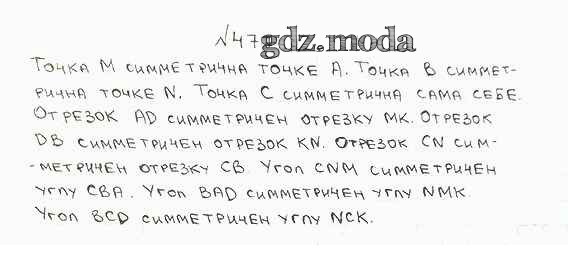 №47 gdz.moda
Точка М симметрична точке А. Точка В симмет-
рична точке N. Точка С симметрична сама себе.
Отрезок АD симметричен отрезку МК. Отрезок
DB симметричен отрезок KN. Отрезок CN сим-
-метричен отрезку СВ. Угол CNM симметричен
углу СВА. Угол BAD симметричен углу NMK.
Угол BCD симметричен углу NCK.